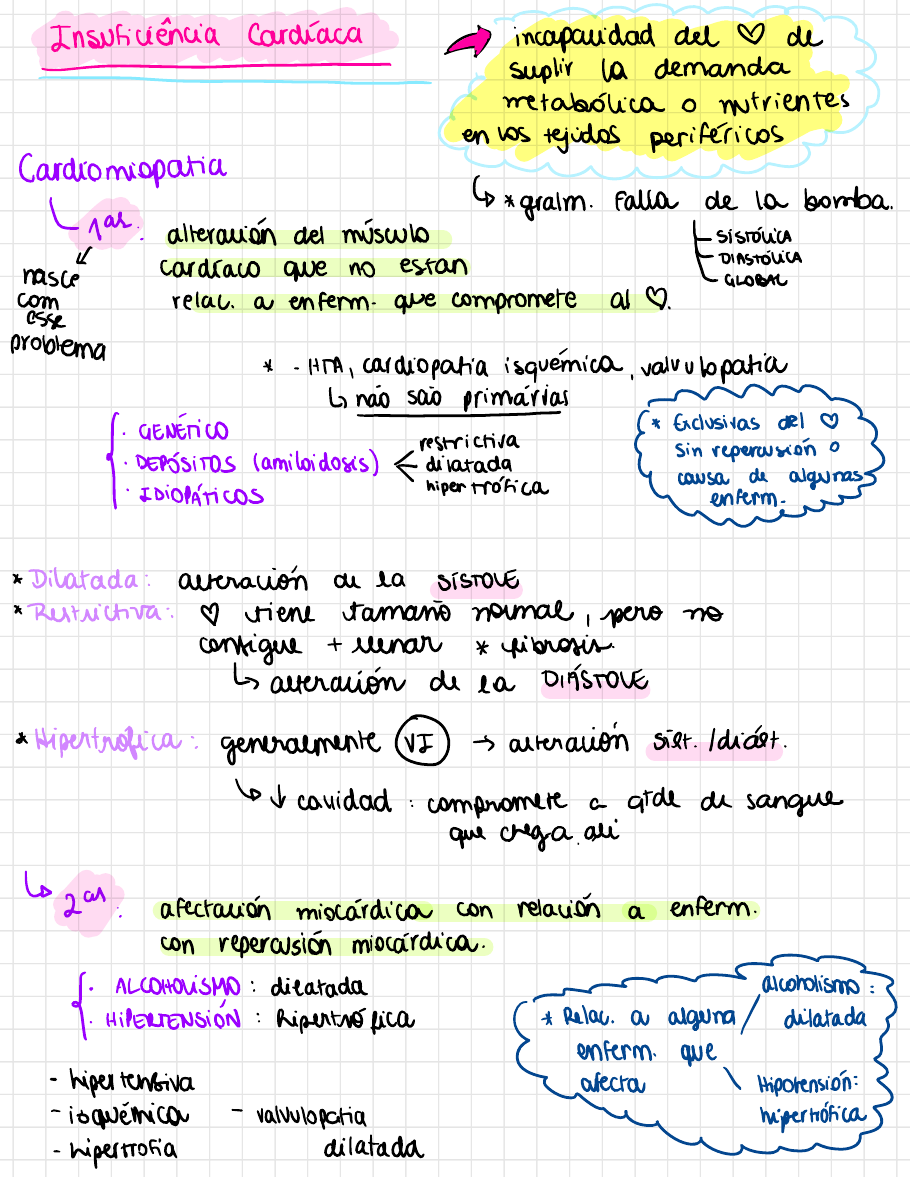 Insuficiência Cardíaca
incapacidad del ♡ de
suplir la demanda
metabólica o nutrientes
en los tejidos periféricos
↳ * gralm. Falla de la bomba.
SISTÓLICA
DIASTÓLICA
GLOBAL
Cardiomiopatia
1as:
alteración del músculo
cardíaco que no estan
relac. a enferm. que compromete al ♡.
nasce
com
esse
problema
* - HTA, cardiopatia isquémica, valvulopatia
↳ não são primárias
· GENÉTICO
· DEPÓSITOS (amiloidosis)
· IDIOPÁTICOS
restrictiva
dilatada
hipertrófica
* Exclusivas del ♡
sin repercusión o
causa de algunas
enferm.
* Dilatada: alteración de la SÍSTOLE
* Restrictiva: ♡ tiene tamaño normal, pero no
consigue + llenar * fibrosis.
↳ alteración de la DIÁSTOLE
* Hipertrofica: generalmente VI → alteración sist. /diást.
↳ ↓ cavidad: compromete a qtde de sangue
que chega ali
↳ 2as:
afectación miocárdica con relación a enferm.
con repercusión miocárdica.
· ALCOHOLISMO: dilatada
· HIPERTENSIÓN: hipertrófica
- hipertensiva
- isquémica - valvulopatia
- hipertrofia dilatada
* Relac. a alguna
enferm. que
afecta
alcoholismo:
dilatada
Hipotensión:
hipertrófica